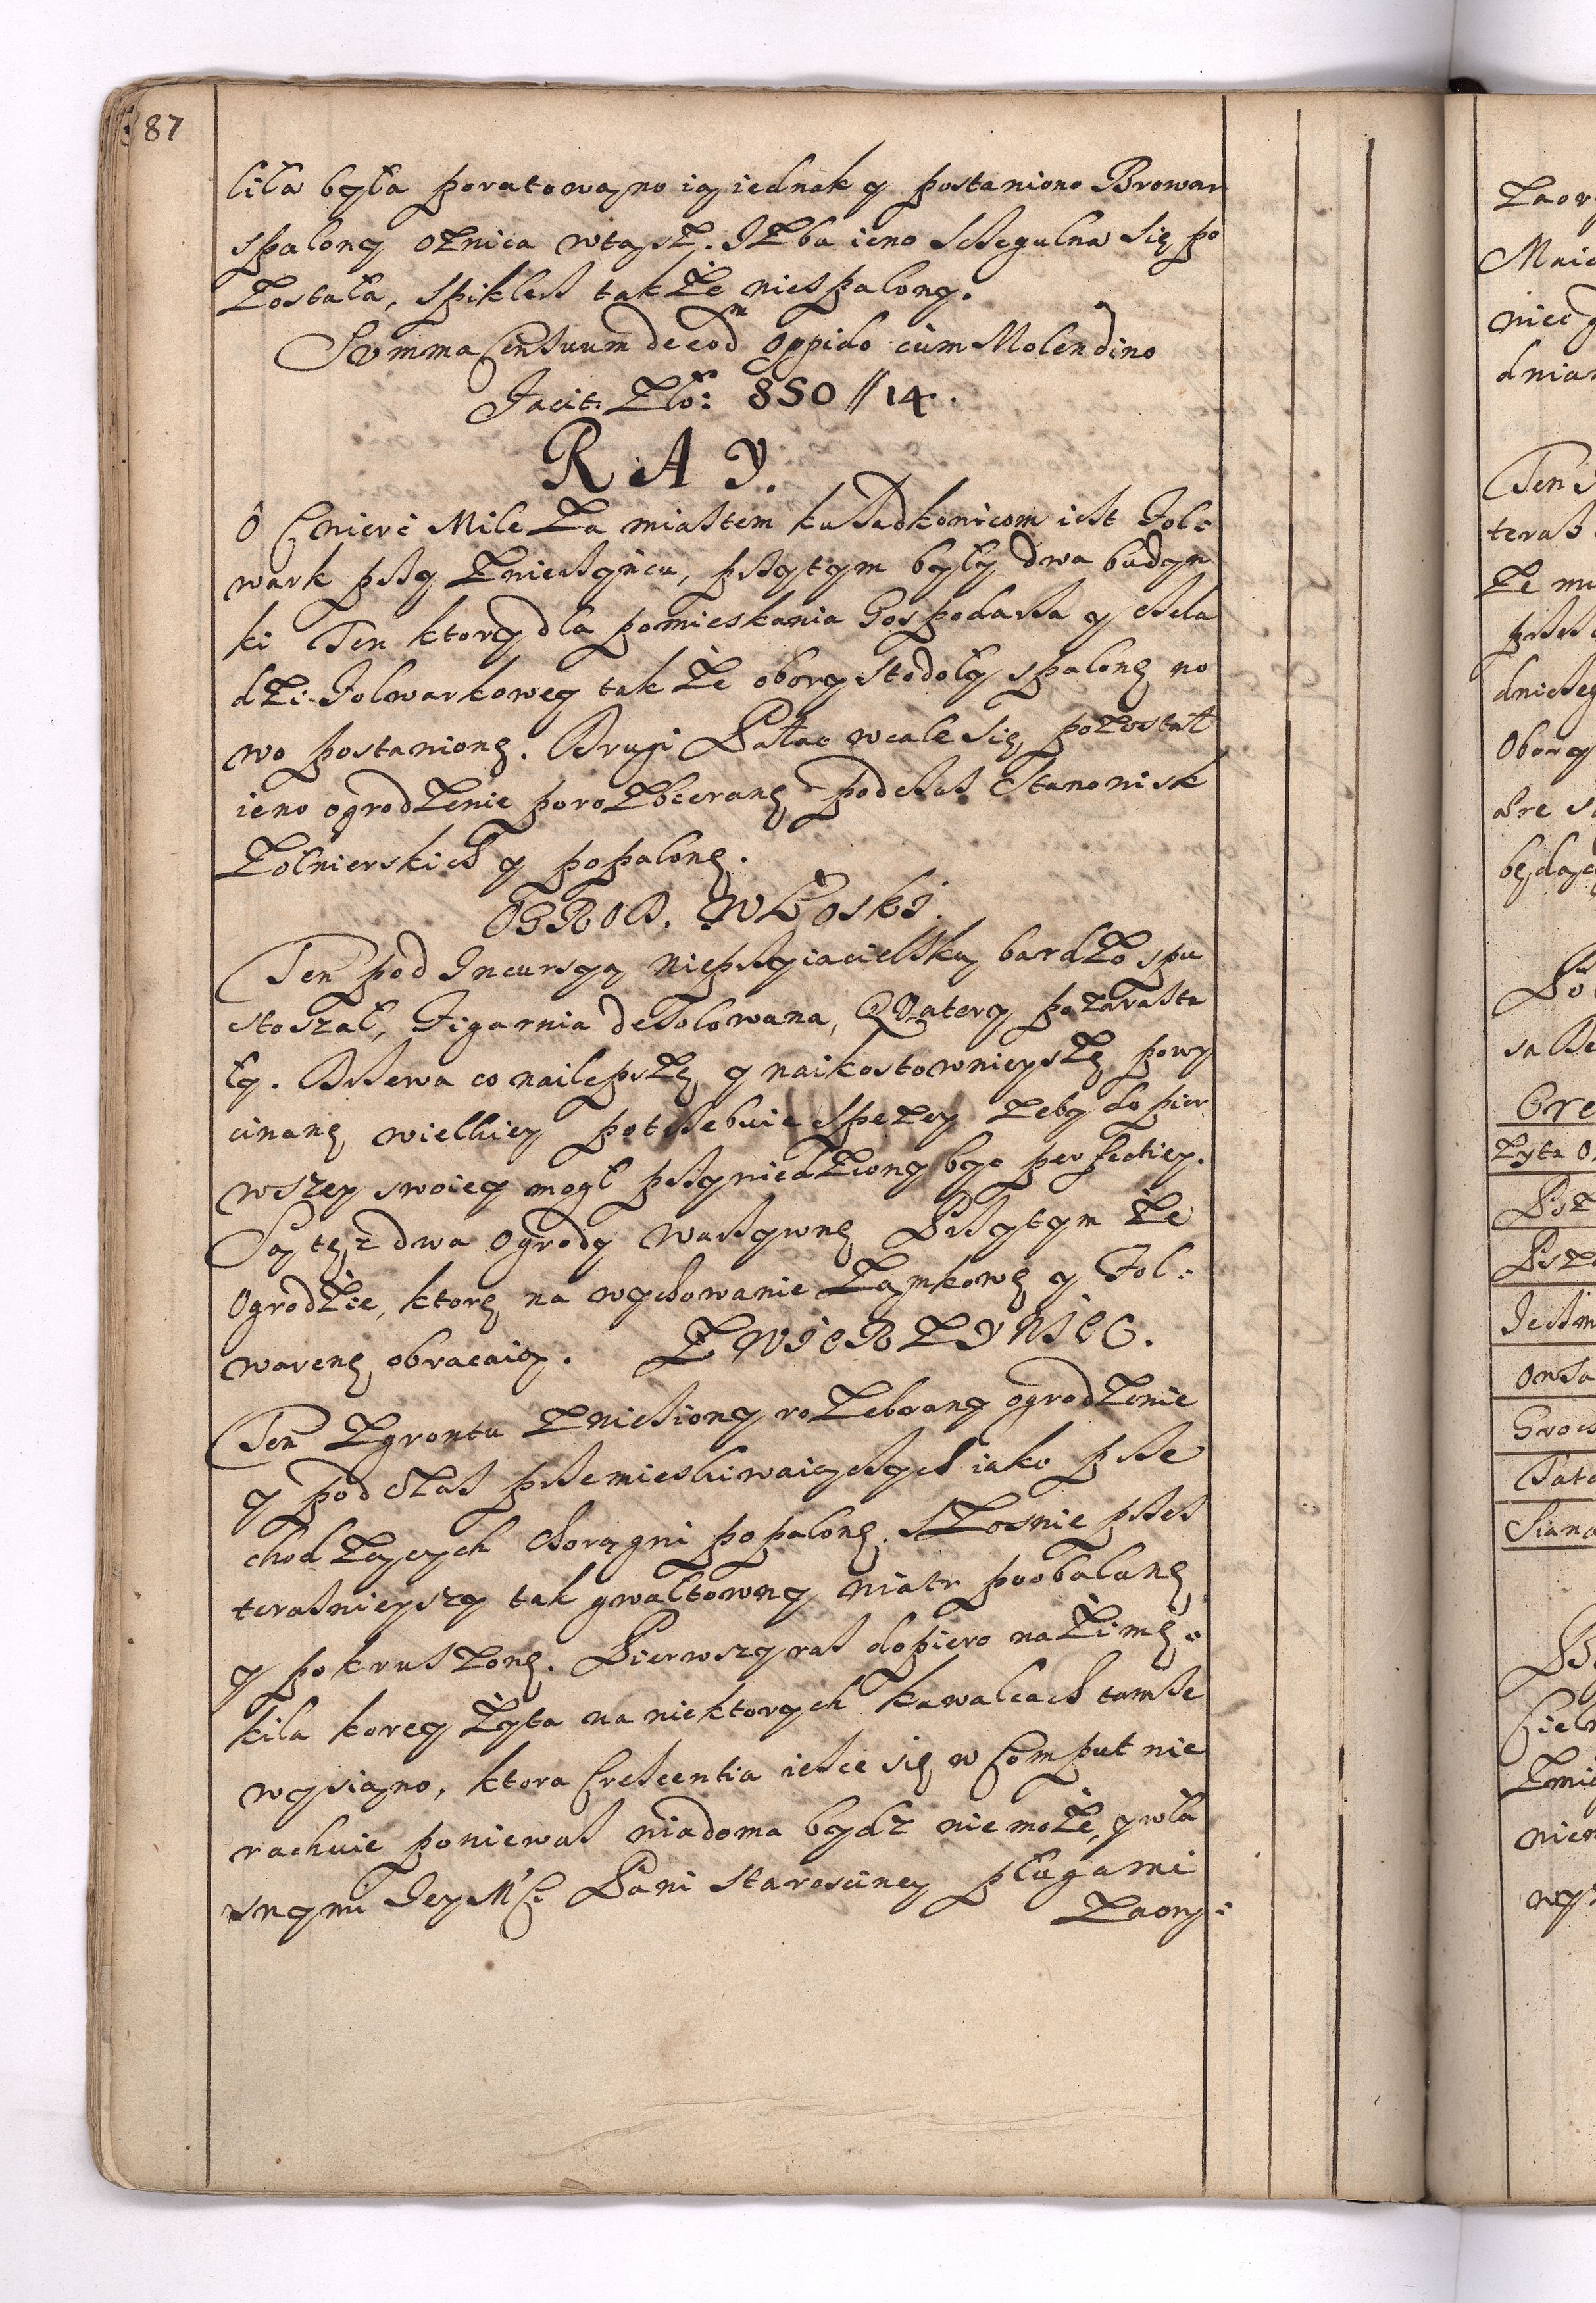 87
liła była poratowano ią iednak y postawiono Browar
spalony oźnica wtąsz. Izba ieno sczegulna się po
zostala, spikless także niespalony.
Summa Censuum de eodm Oppido cum Molendino
Facit Zło: 850 // 14.
RAY.
O Cwierc Mile za miastem ku Sadkowicom iest Fol:
wark przy Zwierzyncu, przytym były dwa budyn
ki Ten ktory dla pomieskania Gospodarza y czela
dzi Folwarkowey także obory stodoły spalonę no
wo postawionę. Drugi Pałac wcale się pozostał
ieno ogrodzenie porozbieranę podczas Stanowisk
Zołnierskich y popalonę.
OGROD. WŁoski.
Ten pod Incursyą nieprzyiacielską bardzo spu
stoszał, Figarnia desolowana, Quatery pozarasta
ły. Drzewa co nailepszę y naikostownieyszę powy
cinanę wielkiey potrzebuie Spezey zeby do pier
wszey swoiey mogł przywiedziony byc perfectiey.
Są też dwa Ogrody warzywnę Przytym ze
Ogrodzie, ktorę na wychowanie Zamkowę y Fol:
warcnę obracaią. ZWIERZYNIEC.
Ten zgrontu zniesiony rozebrany ogrodzenie
y pod czas przemieskiwaiączych iako prze
chodzących chorągni popalonę. Szosnie przes
terasnieyszy tak gwałtowny wiatr poobalanę
y pokruszonę. Pierwszy ras dopiero na Zimę.
kila korcy Żyta na niektorych kawalcach tamze
wysiano, ktora Crescentia iesce się w Comput nie
rachuie poniewas wiadoma bydz nie może, y wła
snymi Jey Mci Pani Starosciney pługami
Zaory:
Zaor
Maią
niec
dnian
Ten
teras
że
przes
dniesz
Obory
bre
będąc
Cre
Zyta
Psz
Psze
Jeczm
Owsa
Groc
Tata
Siana
Ciel
nien
wy